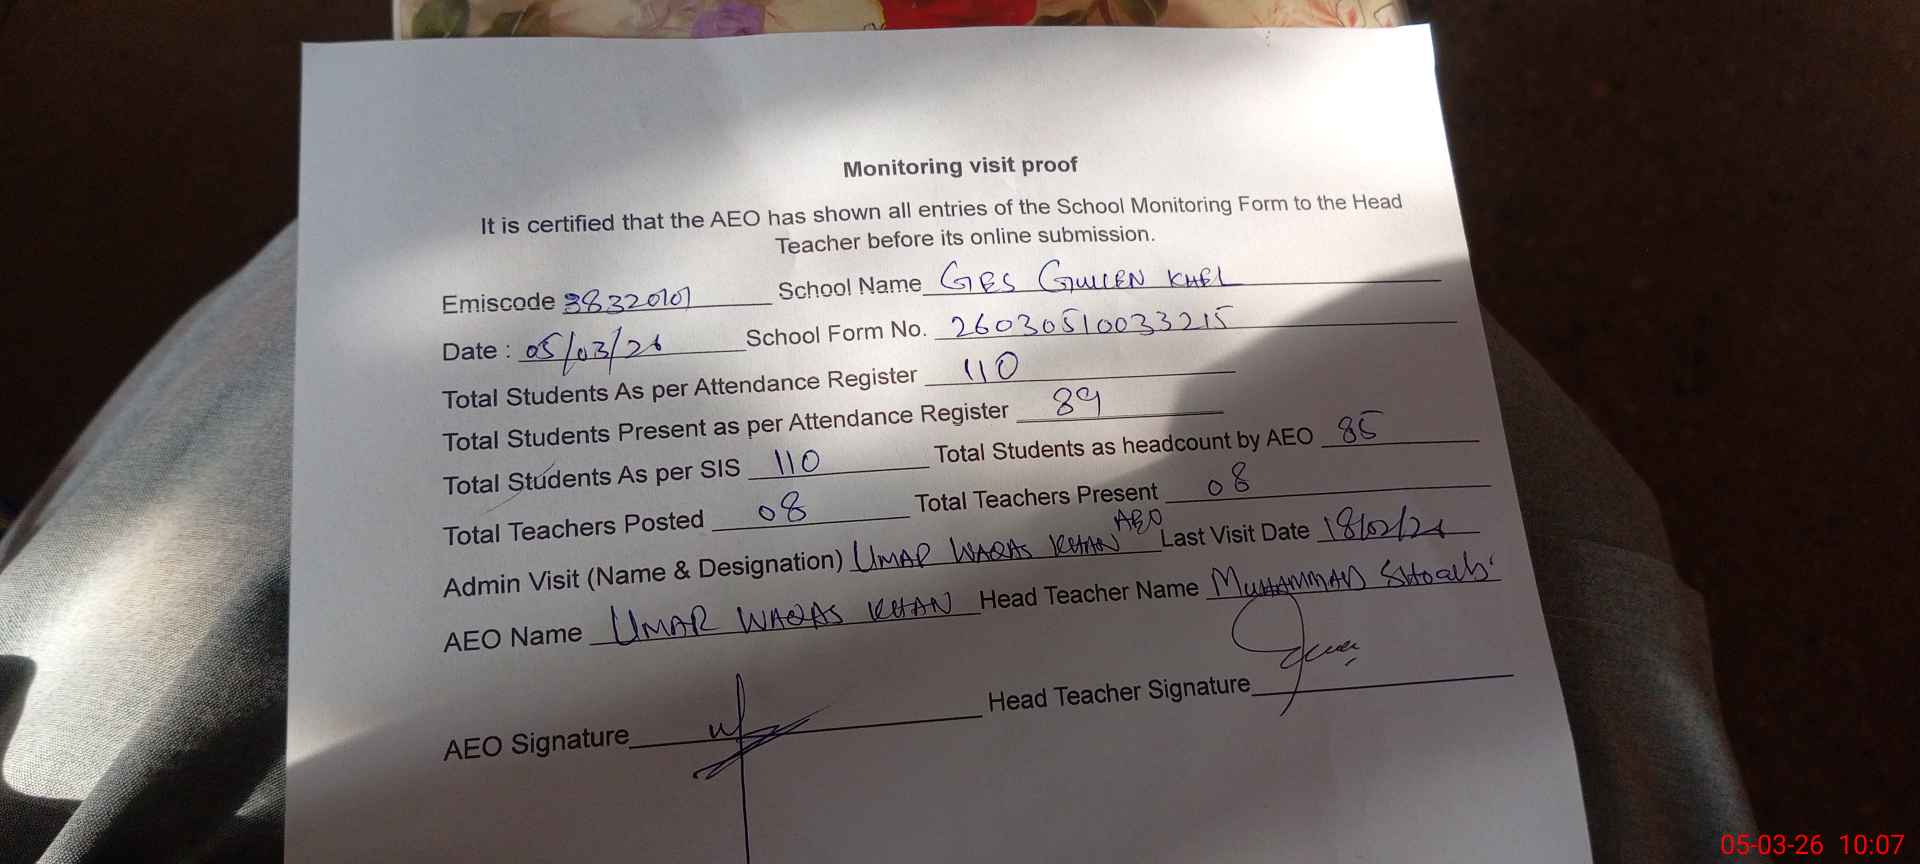 Monitoring visit proof
It is certified that the AEO has shown all entries of the School Monitoring Form to the Head
Teacher before its online submission.
Emiscode 38320101 School Name GES GULLEN KHEL
Date : 05/03/26 School Form No. 26030510033215
Total Students As per Attendance Register 110
Total Students Present as per Attendance Register 89
Total Students As per SIS 110 Total Students as headcount by AEO 85
Total Teachers Posted 08 Total Teachers Present 08
Admin Visit (Name & Designation) UMAR WAQAS KHAN AEO Last Visit Date 18/02/26
AEO Name UMAR WAQAS KHAN Head Teacher Name MUHAMMAD SHOAIB
AEO Signature Head Teacher Signature
05-03-26 10:07